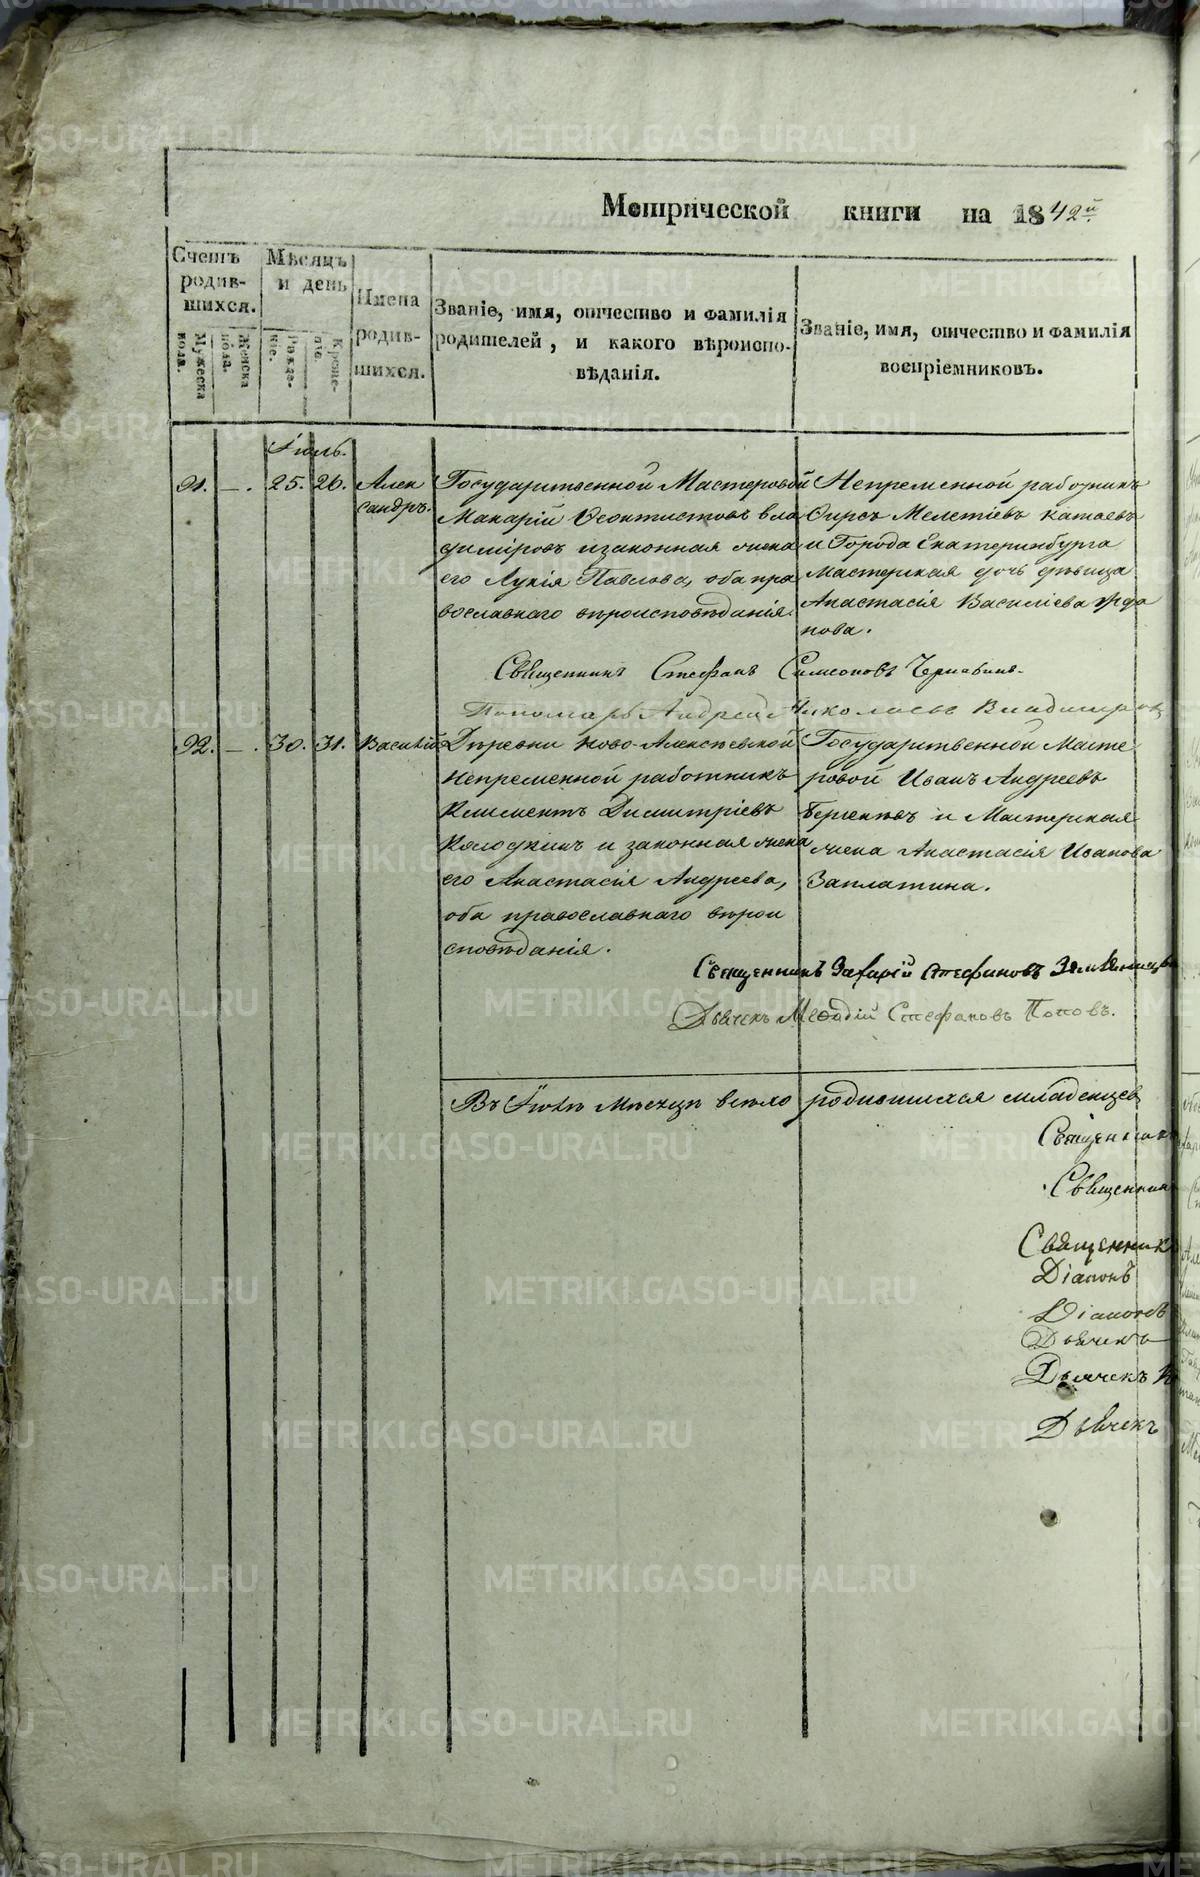 Метрической книги на 1842й
Счетъ родив-шихся.
Мужеска пола.
Женска пола.
Мѣсяцъ и день
Рожде-нiе.
Креще-нiе.
Имена родив-шихся.
Званiе, имя, отчество и фамилiя
родителей, и какого вѣроиспо-
вѣданiя.
Званiе, имя, отчество и фамилiя
воспрiемниковъ.
Iюль.
91. — . 25. 26. Алек
сандръ.
Государственной Мастеровой
Макарiй Ѳеоктистовъ Вла
димiровъ и законная жена
его Лукiя Павлова, оба пра
вославнаго вѣроисповѣданiя.
Непременной работникъ
Ѳирсъ Мелетiевъ Катаевъ
и Города Екатеринбурга
Мастерская дочь девица
Анастасiя Василiева Жда
нова.
Священникъ Стефанъ Симеоновъ Чернавинъ.
Пономарь Андрей Николаевъ Владимiровъ
92. — . 30. 31. Василiй
Деревни Ново-Алексѣевской
Непременной работникъ
Климентъ Димитрiевъ
Колодкинъ и законная жена
его Анастасiя Андреева,
оба православнаго вѣрои
сповѣданiя.
Государственной Масте
ровой Иванъ Андреевъ
и Мастерская
жена Анастасiя Иванова
Заплатина.
Священникъ Захарiй Стефановъ
Дьячекъ Меѳодiй Стефановъ Поповъ.
Въ Iюлѣ Месяцѣ всѣхо родившихся младенцев
Священникъ
Священник
Священник
Дiаконъ
Дiаконъ
Дьячекъ
Дьячекъ
Дьячекъ
METRIKI.GASO-URAL.RU